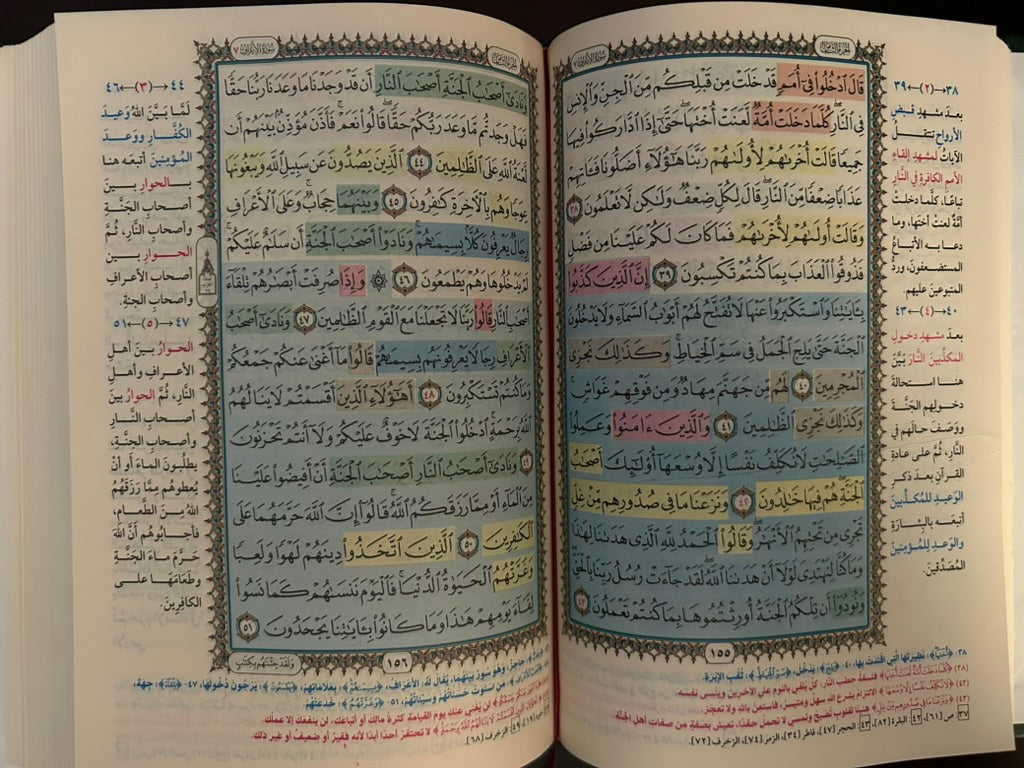 سورة الأعراف ٧
الجزء الثامن
قَالَ ٱدْخُلُوا۟ فِىٓ أُمَمٍ قَدْ خَلَتْ مِن قَبْلِكُم مِّنَ ٱلْجِنِّ وَٱلْإِنسِ
فِى ٱلنَّارِ كُلَّمَا دَخَلَتْ أُمَّةٌ لَّعَنَتْ أُخْتَهَا حَتَّىٰٓ إِذَا ٱدَّارَكُوا۟ فِيهَا
جَمِيعًا قَالَتْ أُخْرَىٰهُمْ لِأُولَىٰهُمْ رَبَّنَا هَٰٓؤُلَآءِ أَضَلُّونَا فَـَٔاتِهِمْ
عَذَابًا ضِعْفًا مِّنَ ٱلنَّارِ قَالَ لِكُلٍّ ضِعْفٌ وَلَٰكِن لَّا تَعْلَمُونَ ٣٨
وَقَالَتْ أُولَىٰهُمْ لِأُخْرَىٰهُمْ فَمَا كَانَ لَكُمْ عَلَيْنَا مِن فَضْلٍ
فَذُوقُوا۟ ٱلْعَذَابَ بِمَا كُنتُمْ تَكْسِبُونَ ٣٩ إِنَّ ٱلَّذِينَ كَذَّبُوا۟
بِـَٔايَٰتِنَا وَٱسْتَكْبَرُوا۟ عَنْهَا لَا تُفَتَّحُ لَهُمْ أَبْوَٰبُ ٱلسَّمَآءِ وَلَا يَدْخُلُونَ
ٱلْجَنَّةَ حَتَّىٰ يَلِجَ ٱلْجَمَلُ فِى سَمِّ ٱلْخِيَاطِ وَكَذَٰلِكَ نَجْزِى
ٱلْمُجْرِمِينَ ٤٠ لَهُم مِّن جَهَنَّمَ مِهَادٌ وَمِن فَوْقِهِمْ غَوَاشٍ
وَكَذَٰلِكَ نَجْزِى ٱلظَّٰلِمِينَ ٤١ وَٱلَّذِينَ ءَامَنُوا۟ وَعَمِلُوا۟
ٱلصَّٰلِحَٰتِ لَا نُكَلِّفُ نَفْسًا إِلَّا وُسْعَهَآ أُو۟لَٰٓئِكَ أَصْحَٰبُ
ٱلْجَنَّةِ هُمْ فِيهَا خَٰلِدُونَ ٤٢ وَنَزَعْنَا مَا فِى صُدُورِهِم مِّنْ غِلٍّ
تَجْرِى مِن تَحْتِهِمُ ٱلْأَنْهَٰرُ وَقَالُوا۟ ٱلْحَمْدُ لِلَّهِ ٱلَّذِى هَدَىٰنَا لِهَٰذَا
وَمَا كُنَّا لِنَهْتَدِىَ لَوْلَآ أَنْ هَدَىٰنَا ٱللَّهُ لَقَدْ جَآءَتْ رُسُلُ رَبِّنَا بِٱلْحَقِّ
وَنُودُوٓا۟ أَن تِلْكُمُ ٱلْجَنَّةُ أُورِثْتُمُوهَا بِمَا كُنتُمْ تَعْمَلُونَ ٤٣
١٥٥
٣٨ ← (٢) → ٣٩
بعدَ مشهدِ قبضِ
الأرواحِ تنتقلُ
الآياتُ لمشهدِ إلقاءِ
الأممِ الكافرةِ في النَّارِ
تباعًا، كلَّما دخلت
أمَّةٌ لعنت أختَها، وما
دعا به الأتباعُ
المستضعفونَ، وردُّ
المتبوعين عليهم.
٤٠ ← (٤) → ٤٣
بعدَ مشهدِ دخولِ
المكذِّبينَ النَّارَ بَيَّنَ
هنا استحالةَ
دخولِهم الجَنَّةَ
ووَصَفَ حالَهم في
النَّارِ، ثُمَّ على عادةِ
القرآنِ بعدَ ذكرِ
الوَعِيدِ للمُكذِّبينَ
أتبعَه بالبشارَةِ
والوَعدِ للمُؤمنِينَ
المُصَدِّقينَ.
٣٨- ﴿أُخْتَهَا﴾: نظيرتها التي اقتدت بها، ٤٠- ﴿يَلِجَ﴾: يدخل، ﴿سَمِّ الْخِيَاطِ﴾: ثقب الإبرة.
(٣٨) ﴿كُلَّمَا دَخَلَتْ أُمَّةٌ لَعَنَتْ أُخْتَهَا﴾ فلسفة حطب النَّار: كلٌّ يلقي باللوم على الآخرين وينسى نفسه.
(٤٢) ﴿لَا نُكَلِّفُ نَفْسًا إِلَّا وُسْعَهَا﴾ الالتزام بشرع الله سهل وميسر، فاستعن بالله ولا تعجز.
(٤٣) ﴿وَنَزَعْنَا مَا فِي صُدُورِهِم مِّنْ غِلٍّ﴾ هنيئًا لقلوب تصفح وتنسى لا تحمل حقدًا، تعيش بصفة من صفات أهل الجنَّة.
٣٧: ص [٦١]، ٤٢: البقرة [٨٢]، ٤٣: الحجر [٤٧]، فاطر [٣٤]، الزمر [٧٤]، الزخرف [٧٢].
الجزء الثامن
سورة الأعراف ٧
وَنَادَىٰٓ أَصْحَٰبُ ٱلْجَنَّةِ أَصْحَٰبَ ٱلنَّارِ أَن قَدْ وَجَدْنَا مَا وَعَدَنَا رَبُّنَا حَقًّا
فَهَلْ وَجَدتُّم مَّا وَعَدَ رَبُّكُمْ حَقًّا قَالُوا۟ نَعَمْ فَأَذَّنَ مُؤَذِّنٌۢ بَيْنَهُمْ أَن
لَّعْنَةُ ٱللَّهِ عَلَى ٱلظَّٰلِمِينَ ٤٤ ٱلَّذِينَ يَصُدُّونَ عَن سَبِيلِ ٱللَّهِ وَيَبْغُونَهَا
عِوَجًا وَهُم بِٱلْـَٔاخِرَةِ كَٰفِرُونَ ٤٥ وَبَيْنَهُمَا حِجَابٌ وَعَلَى ٱلْأَعْرَافِ
رِجَالٌ يَعْرِفُونَ كُلًّۢا بِسِيمَىٰهُمْ وَنَادَوْا۟ أَصْحَٰبَ ٱلْجَنَّةِ أَن سَلَٰمٌ عَلَيْكُمْ
لَمْ يَدْخُلُوهَا وَهُمْ يَطْمَعُونَ ٤٦ ۞ وَإِذَا صُرِفَتْ أَبْصَٰرُهُمْ تِلْقَآءَ
أَصْحَٰبِ ٱلنَّارِ قَالُوا۟ رَبَّنَا لَا تَجْعَلْنَا مَعَ ٱلْقَوْمِ ٱلظَّٰلِمِينَ ٤٧ وَنَادَىٰٓ أَصْحَٰبُ
ٱلْأَعْرَافِ رِجَالًا يَعْرِفُونَهُم بِسِيمَىٰهُمْ قَالُوا۟ مَآ أَغْنَىٰ عَنكُمْ جَمْعُكُمْ
وَمَا كُنتُمْ تَسْتَكْبِرُونَ ٤٨ أَهَٰٓؤُلَآءِ ٱلَّذِينَ أَقْسَمْتُمْ لَا يَنَالُهُمُ
ٱللَّهُ بِرَحْمَةٍ ٱدْخُلُوا۟ ٱلْجَنَّةَ لَا خَوْفٌ عَلَيْكُمْ وَلَآ أَنتُمْ تَحْزَنُونَ
٤٩ وَنَادَىٰٓ أَصْحَٰبُ ٱلنَّارِ أَصْحَٰبَ ٱلْجَنَّةِ أَنْ أَفِيضُوا۟ عَلَيْنَا
مِنَ ٱلْمَآءِ أَوْ مِمَّا رَزَقَكُمُ ٱللَّهُ قَالُوٓا۟ إِنَّ ٱللَّهَ حَرَّمَهُمَا عَلَى
ٱلْكَٰفِرِينَ ٥٠ ٱلَّذِينَ ٱتَّخَذُوا۟ دِينَهُمْ لَهْوًا وَلَعِبًا
وَغَرَّتْهُمُ ٱلْحَيَوٰةُ ٱلدُّنْيَا فَٱلْيَوْمَ نَنسَىٰهُمْ كَمَا نَسُوا۟
لِقَآءَ يَوْمِهِمْ هَٰذَا وَمَا كَانُوا۟ بِـَٔايَٰتِنَا يَجْحَدُونَ ٥١
وَلَقَدْ جِئْنَٰهُم بِكِتَٰبٍ
١٥٦
٤٤ ← (٣) → ٤٦
لَمَّا بَيَّنَ اللهُ وَعِيدَ
الكُفَّارِ وَوَعدَ
المُؤمنِينَ أتبعَه هنا
بالحوارِ بينَ
أصحابِ الجَنَّةِ
وأصحابِ النَّارِ، ثُمَّ
الحوارِ بين
أصحابِ الأعرافِ
وأصحابِ الجنةِ.
٤٧ ← (٥) → ٥١
الحوارُ بينَ أهلِ
الأعرافِ وأهلِ
النَّارِ، ثُمَّ الحوارُ بينَ
أصحابِ النَّارِ
وأصحابِ الجنَّةِ،
يطلبُونَ الماءَ أو أنْ
يُعطوهُم مِمَّا رَزَقَهُم
اللهُ مِنَ الطَّعامِ،
فأجابُوهُم أنَّ اللهَ
حَرَّمَ ماءَ الجَنَّةِ
وطعَامَهَا على
الكافِرِينَ.
حاجز، وهو سور بينهما، يقال له: الأعراف، ﴿بِسِيمَاهُمْ﴾: بعلاماتهم، ﴿يَطْمَعُونَ﴾: يرجون دخولها، ٤٧- ﴿تِلْقَاءَ﴾: جهة،
من استوت حسناتهم وسيئاتهم، ٥١- ﴿وَغَرَّتْهُمُ﴾: خدعتهم.
لن يغني عنك يوم القيامة كثرة مالك أو أتباعك، لن ينفعك إلا عملك.
لا تحتقر أحدًا أبدًا لأنه فقير أو ضعيف أو غير ذلك.
الزخرف [٦٨].